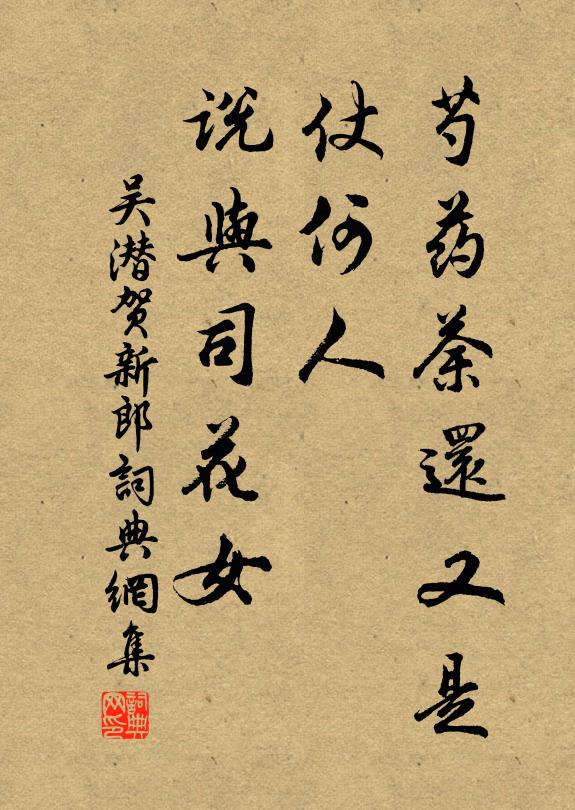 芍药荼還又是
仗何人
説與司花女
吴潜贺新郎詞典網集
詞典网印